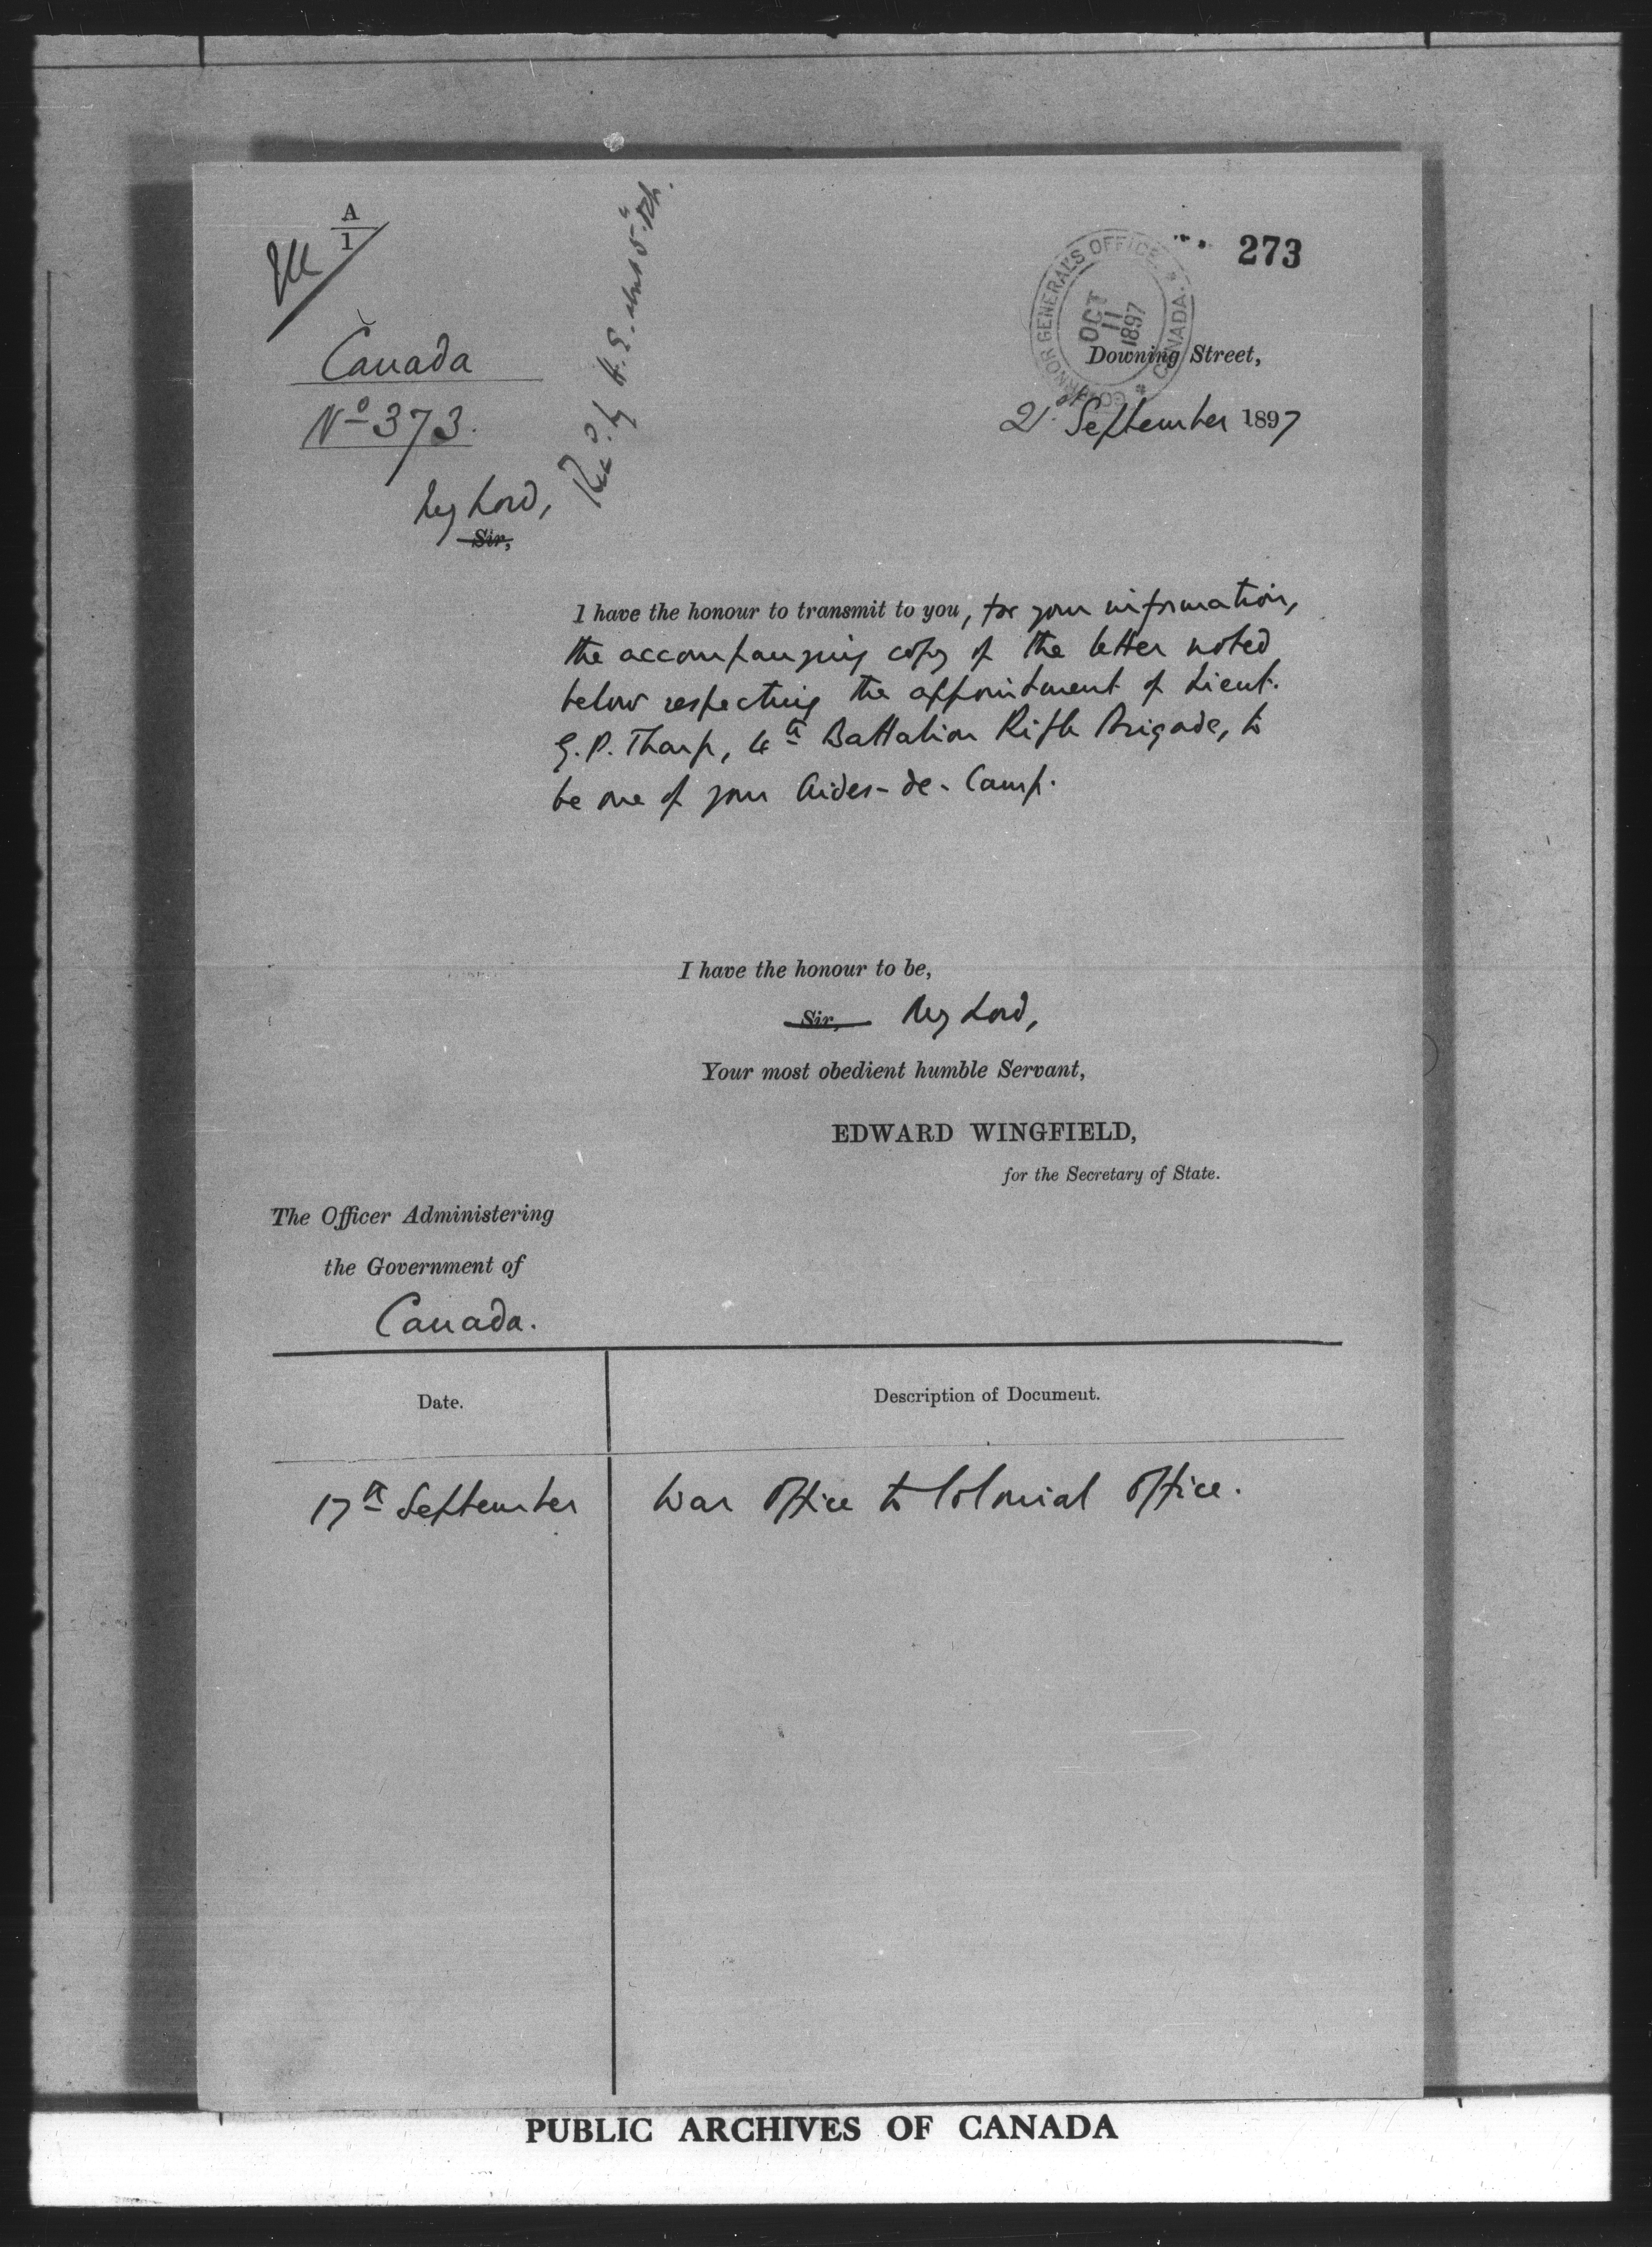 A
1
273
GOVERNOR GENERAL'S OFFICE. * CANADA. *
OCT
11
1897
Canada
Nº 373.
Downing Street,
21 September 1897
Rec.d by H.E.
My Lord,
Sir,
I have the honour to transmit to you, for your information,
the accompanying copy of the letter noted
below respecting the appointment of Lieut.
G. P. Tharp, 4th Battalion Rifle Brigade, to
be one of your Aides-de-Camp.
I have the honour to be,
Sir, My Lord,
Your most obedient humble Servant,
EDWARD WINGFIELD,
for the Secretary of State.
The Officer Administering
the Government of
Canada.
Date.
Description of Document.
17th September
War Office to Colonial Office.
PUBLIC ARCHIVES OF CANADA